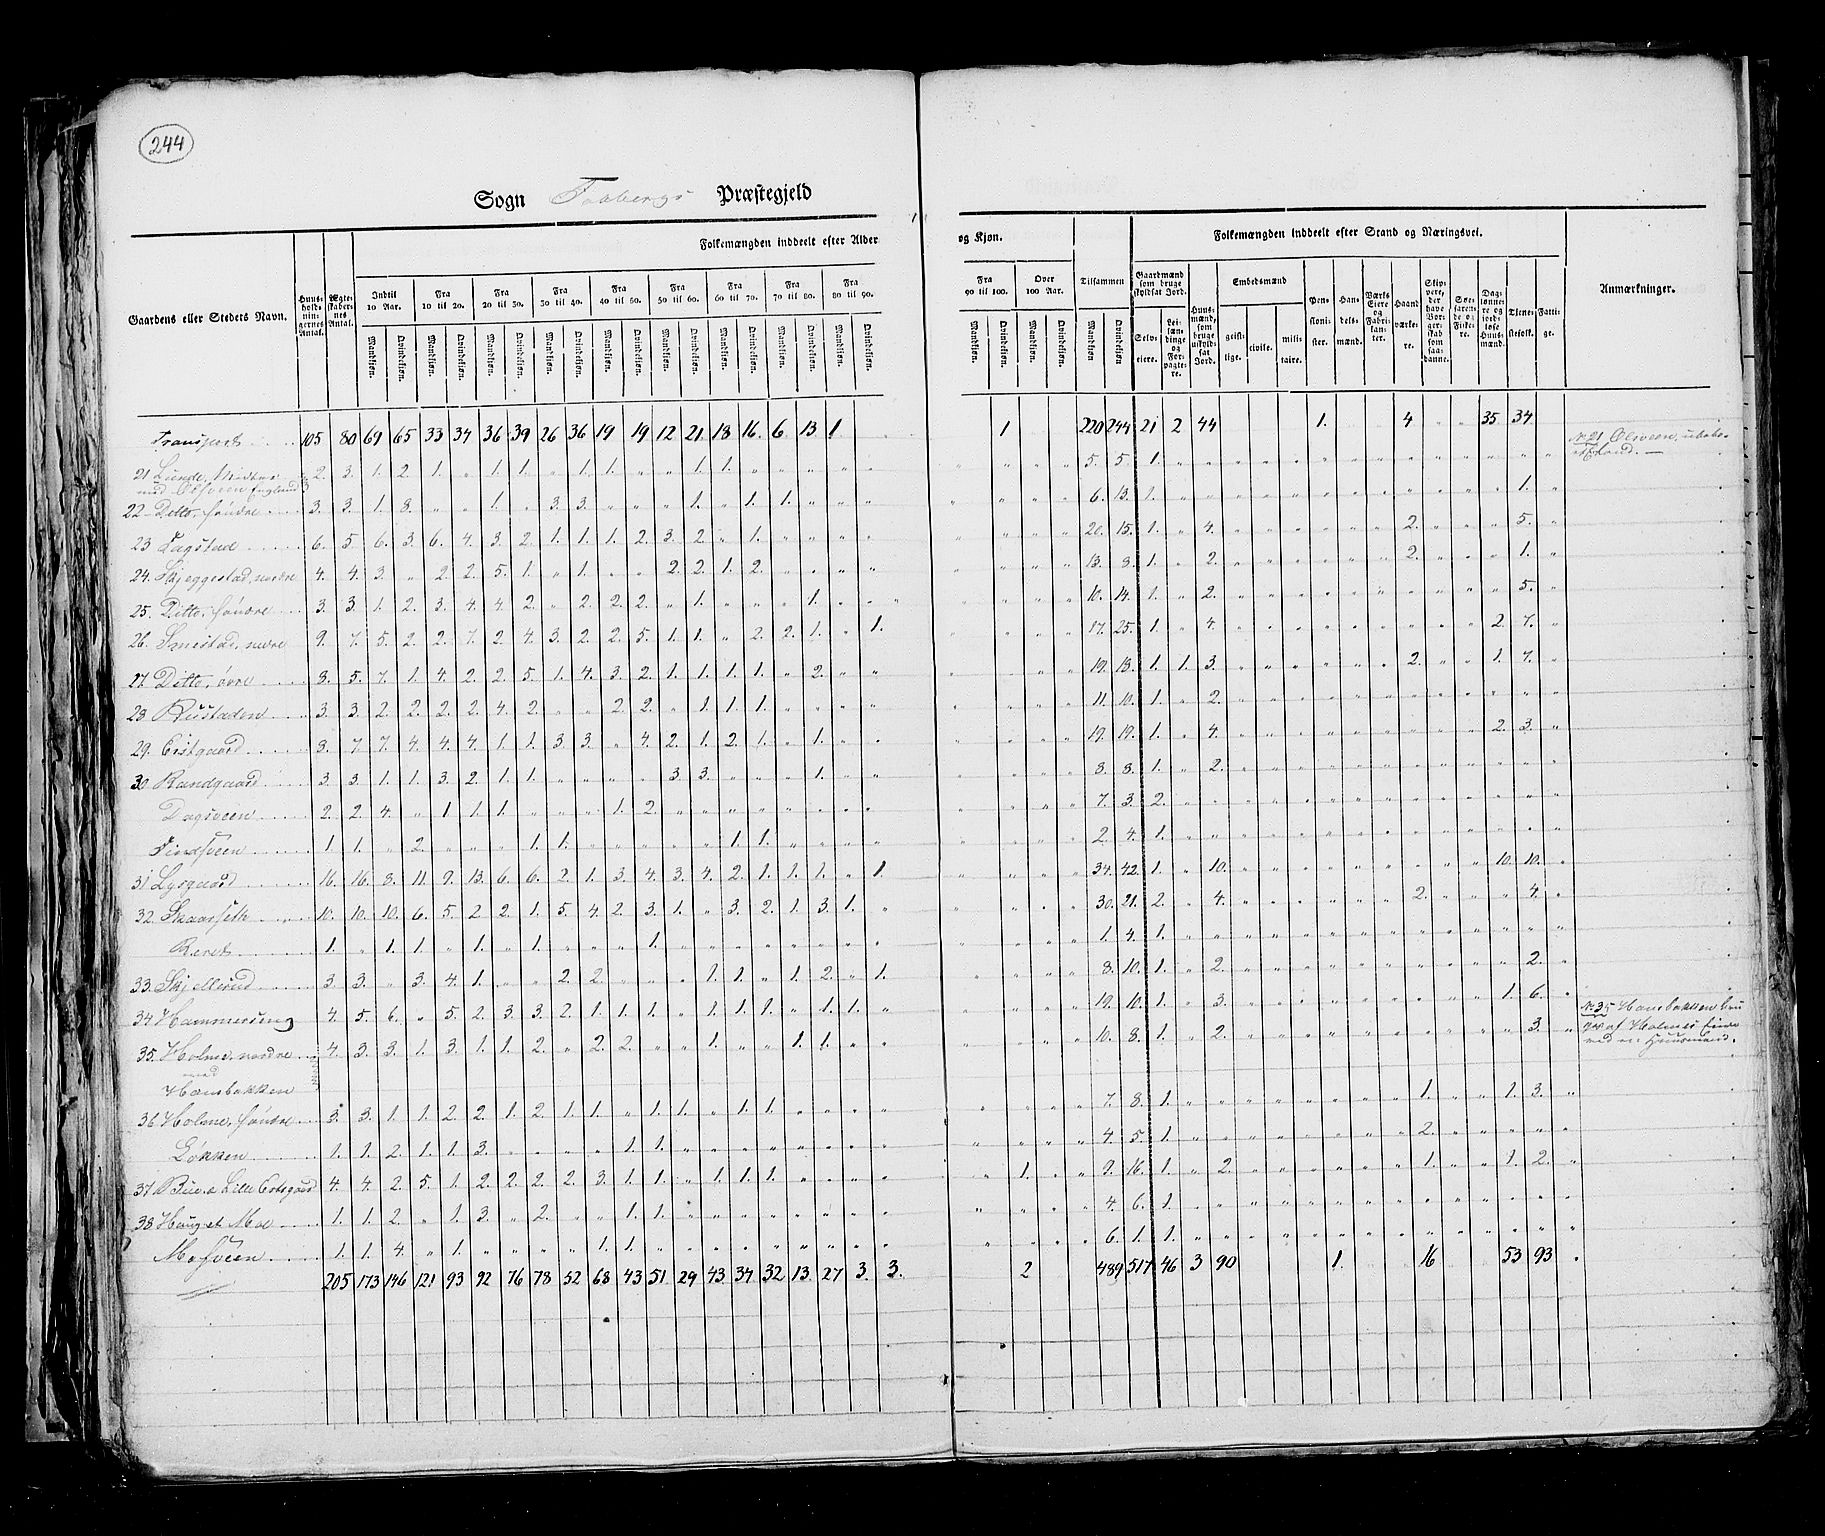 244
Sogn Faabergs Præstegjeld
Gaardens eller Stedets Navn.
Huusholdningernes Antal.
Ægteskabernes Antal.
Folkemængden inddeelt efter Alder og Kjøn.
Indtil 10 Aar. Fra 10 til 20. Fra 20 til 30. Fra 30 til 40. Fra 40 til 50. Fra 50 til 60. Fra 60 til 70. Fra 70 til 80. Fra 80 til 90. Fra 90 til 100. Over 100 Aar. Tilsammen
Mandkjøn. Qvindekjøn.
Folkemængden inddeelt efter Stand og Næringsvei.
Gaardmænd som bruge skyldsat Jord. Selveiere. Leilændinge og Forpagtere.
Huusmænd, som bruge uskyldsat Jord.
Embedsmænd geistlige. civile. militaire.
Pensionister.
Handelsmænd.
Værks Eiere og Fabrikanter.
Haandværkere.
Skippere, der have Borgerskab som saadanne.
Søefarende og Fiskere.
Daglønnere og jordløse Huusmænd.
Tjenestefolk.
Fattige.
Anmærkninger.
Transport 105 80 69 65 33 34 36 39 26 36 19 19 12 21 18 16 6 13 1 1 220 244 21 2 44 1. 4 35 34
No 21 Olsveen
21 Lunde, Midtre 2. 3. 1. 2. 1. " 1. 1. " 1. 1. " " 1. 1. 5. 5. 1.
med Olsveen Englund
22 Ditto, søndre 3. 3. 1. 8. " " 1. " 3. 3. " " " 1. " 1. 1. 6. 13. 1. 1.
23 Fagstad 6. 5. 6. 3. 6. 4. 3. 2. 1. 1. 1. 2. 3. 2. " 1. 20. 15. 1. " 4. 2. 5.
24. Skjeggestad, nordre 4. 4. 3. " 2. 2. 5. 1. " 1. " " 2. 2. 1. 2. 13. 8. 1. " 2. 2. 1.
25. Ditto, søndre 3. 3. 1. 2. 3. 4. 4. 2. " 2. 2. 2. " 1. " " " 1. 10. 14. 1. " 2. 5.
26. Smestad, nedre 9. 7. 5. 2. 2. 7. 2. 4. 3. 2. 2. 5. 1. 1. " 2. 2. 1. " 1. 17. 25. 1. " 4. 2. 7.
27. Ditto, øvre 8. 5. 7. 1. 4. 2. 2. 5. 1. 4. 3. 2. 1. 1. 1. 1. " 2. 19. 18. 1. 1. 3. 2. 1. 7.
28 Rustaden 3. 3. 2. 2. 2. 2. 4. 2. " " 2. 2. " 1. 1. 1. 11. 10. 1. " 2.
29. Cristgaard 8. 7 7. 4. 4. 4. 1. 1. 3. 3. " 4. 2. 1. 2. 1. " 1. 19. 19. 1. " 4. 2. 3.
30 Randgaard 3. 3. 1. 1. 3. 2. 1. 1. " " " " 3 3. " " " 1. 8. 8. 1. " 2.
Dagsveen 2. 2. 4. " 1 1. 1. " " " 1. 2. 7. 3. 2.
Findsveen 1 1. " 2. " " " 1. 1. " " " " " 1. 1. 2. 4. 1.
31 Lysgaard 16. 16. 8. 11. 9. 13. 6. 6. 2. 1. 3. 4. 3. 4. 2. 1. 1. 1. " 1. 34. 42. 1. " 10. 10. 10.
32. Skaarseth 10. 10. 10. 6. 5. 2 2. 1. 5. 4. 2. 3. 1. " 3. 2. 1. 3. 1. 30. 21. 2. " 4. 2. 4.
1. " 1. 1. " 1. " 1. " " " 1. 1. 4. 1.
33. Skjellerud 3. 3. " 3. 4. 1. " " 2. 2. " " " 1. 1. " 1. 2. " 1. 8. 10. 1. " 2. 2.
34 Hammerseng 4. 5. 6. " 5. 2. 3. 3. 2. 1. 1. 1. " 1. 1. 1. " 1. 1. 19. 10. 1. " 3. 1 6.
No 35 Hansbakken bru
ges af Holmes Eiere
ved en Huusmand.
35. Holme, nordre 4. 3. 3. 1. 3. 1. 1. 2. " 2. 2. " " 1. " " 1. 1. 10. 8. 1. " 2. 3.
med
Hansbakken
36 Holme, søndre 3. 3. 1. 1. 2. 2. 1. 2. 1. 1. " 1. 1. " 1. 1. 7. 8. 1. 1. 1. 3.
Løkken 1. 1. 2. 1. 1. 3. " " " " 1. 1. 4. 5. 1. 2.
37 Bue, & Lille Cristgaard 4. 4. 2. 5. 1. 2. 2. 2. 2. 3. 1. 1. " 1. 1. 1. 1. 9. 16. 1. " 2. 1. 1. 2.
38 Haug et Moe 1. 1. 2. " 1. 3. " 2. " " 1. 1. 4. 6. 1.
Mosveen 1. 1. 4. " 1. " " " " 1. 1. 6. 1. 1.
205 173 146 121 93 92 76 78 52 68 43 51 29 43 34 32 13 27 3. 3. 2 489 517 46 3 90 1 16 53 93